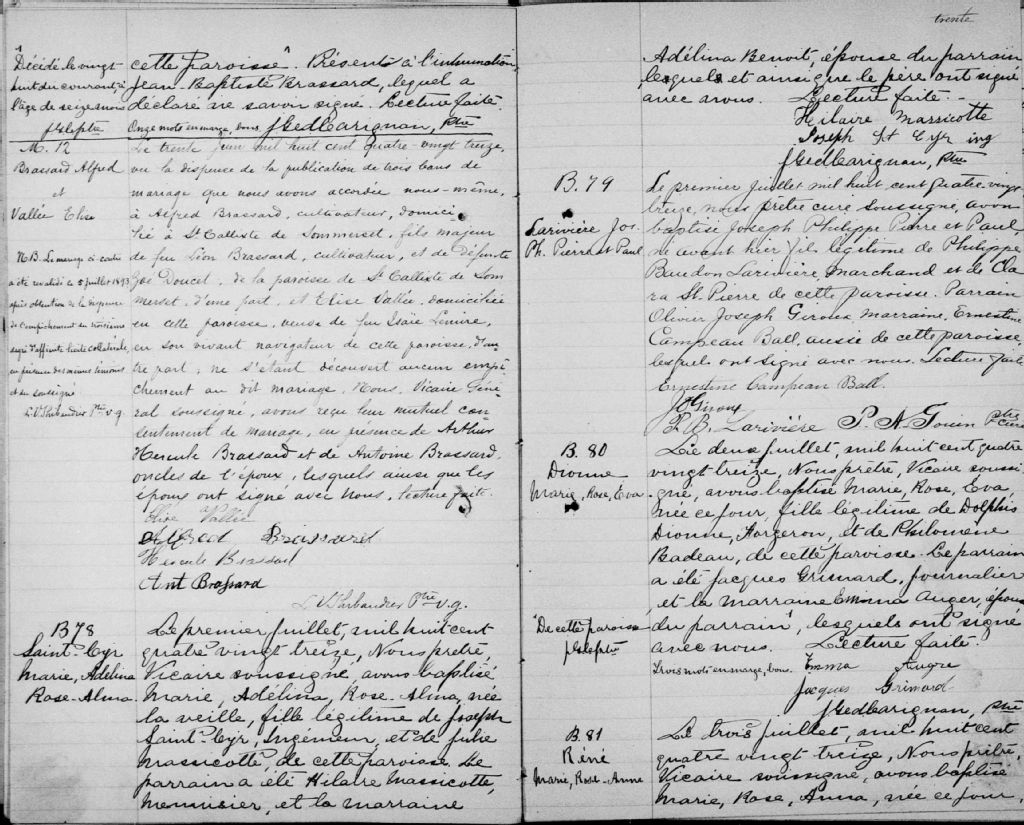 Décidé le vingt
huit du courant, à
l'âge de seize mois
cette paroisse. Présents à l'inhumation
Jean-Baptiste Brassard, lequel a
déclaré ne savoir signé. Lecture faite.
Onze mots en marge, bons J Ged Carignan, Ptre
M. 12
Brassard Alfred
et
Vallée Elise
N.B. Le mariage ci-contre
a été revalidé ce 5 juillet 1893
après obtention de la dispense
de l'empêchement du troisième
degré d'affinité licite collatérale,
en présence des mêmes témoins
et du soussigné
Le trente juin mil huit cent quatre-vingt treize,
vu la dispense de la publication de trois bans de
mariage que nous avons accordée nous-même,
à Alfred Brassard, cultivateur, domici-
lié à St Calliste de Sommerset, fils majeur
de feu Léon Brassard, cultivateur, et de défunte
Zoé Doucet, de la paroisse de St Calliste de Som-
merset, d'une part, et Elise Vallée, domiciliée
en cette paroisse, veuve de feu Isaïe Lemire,
en son vivant navigateur de cette paroisse, d'au-
tre part; ne s'étant découvert aucun empê-
chement au dit mariage, Nous, Vicaire Géné-
ral soussigné, avons reçu leur mutuel con-
sentement de mariage, en présence de Arthur
Hercule Brassard et de Antoine Brassard,
oncles de l'époux, lesquels ainsi que les
époux ont signé avec nous, lecture faite.
Elise Vallée
Alfred Brassard
Hercule Brassard
Ant Brassard
Ptre V.g.
B 78
Saint-Cyr
Marie, Adélina
Rose-Alma
Le premier juillet, mil huit cent
quatre vingt treize, Nous prêtre
Vicaire soussigné, avons baptisé
Marie, Adélina, Rose-Alma, née
la veille, fille légitime de Joseph
Saint-Cyr, Ingénieur, et de Julie
Massicotte, de cette paroisse. Le
parrain a été Hilaire Massicotte,
menuisier, et la marraine
trente
Adélina Benoit, épouse du parrain
lesquels et ainsi que le père ont signé
avec nous. Lecture faite.
Hilaire Massicotte
Joseph St Cyr ing
J Ged Carignan, Ptre
B. 79
Larivière Jos.
Ph. Pierre et Paul
Le premier juillet mil huit cent quatre-vingt
treize, nous prêtre curé soussigné, avons
baptisé Joseph Philippe Pierre et Paul,
né avant hier fils légitime de Philippe
Larivière Marchand et de Cla-
ra St. Pierre de cette paroisse. Parrain
Olivier Joseph Giroux, Marraine, Ernestine
Campeau Ball, aussi de cette paroisse
lesquels ont signé avec nous. Lecture faite
Ernestine Campeau Ball.
J O Giroux
P. B. Larivière P. N. Tourin Ptre Curé
B. 80
Dionne
Marie, Rose, Eva
Le deux juillet, mil huit cent quatre
vingt treize, Nous prêtre, Vicaire soussi-
gné, avons baptisé Marie, Rose, Eva,
née ce jour, fille légitime de Dolphis
Dionne, Forgeron, et de Philomène
Badeau, de cette paroisse. Le parrain
a été Jacques Grimard, journalier
et la marraine Emma Auger, épouse
du parrain, lesquels ont signé
avec nous. Lecture faite.
De cette paroisse
Trois mots en marge, bons. Emma Augre
Jacques Grimard
J Ged Carignan, Ptre
B 81
Réné
Marie, Rose-Anne
Le trois juillet, mil huit cent
quatre vingt treize, Nous prêtre,
Vicaire soussigné, avons baptisé
Marie, Rose, Anna, née ce jour,